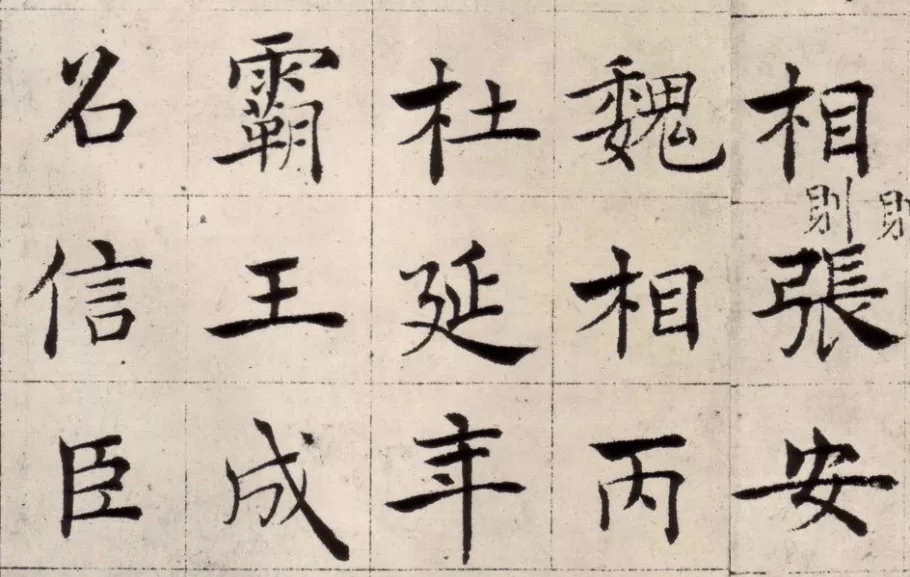 相則張安
魏相丙
杜延年
霸王成
召信臣